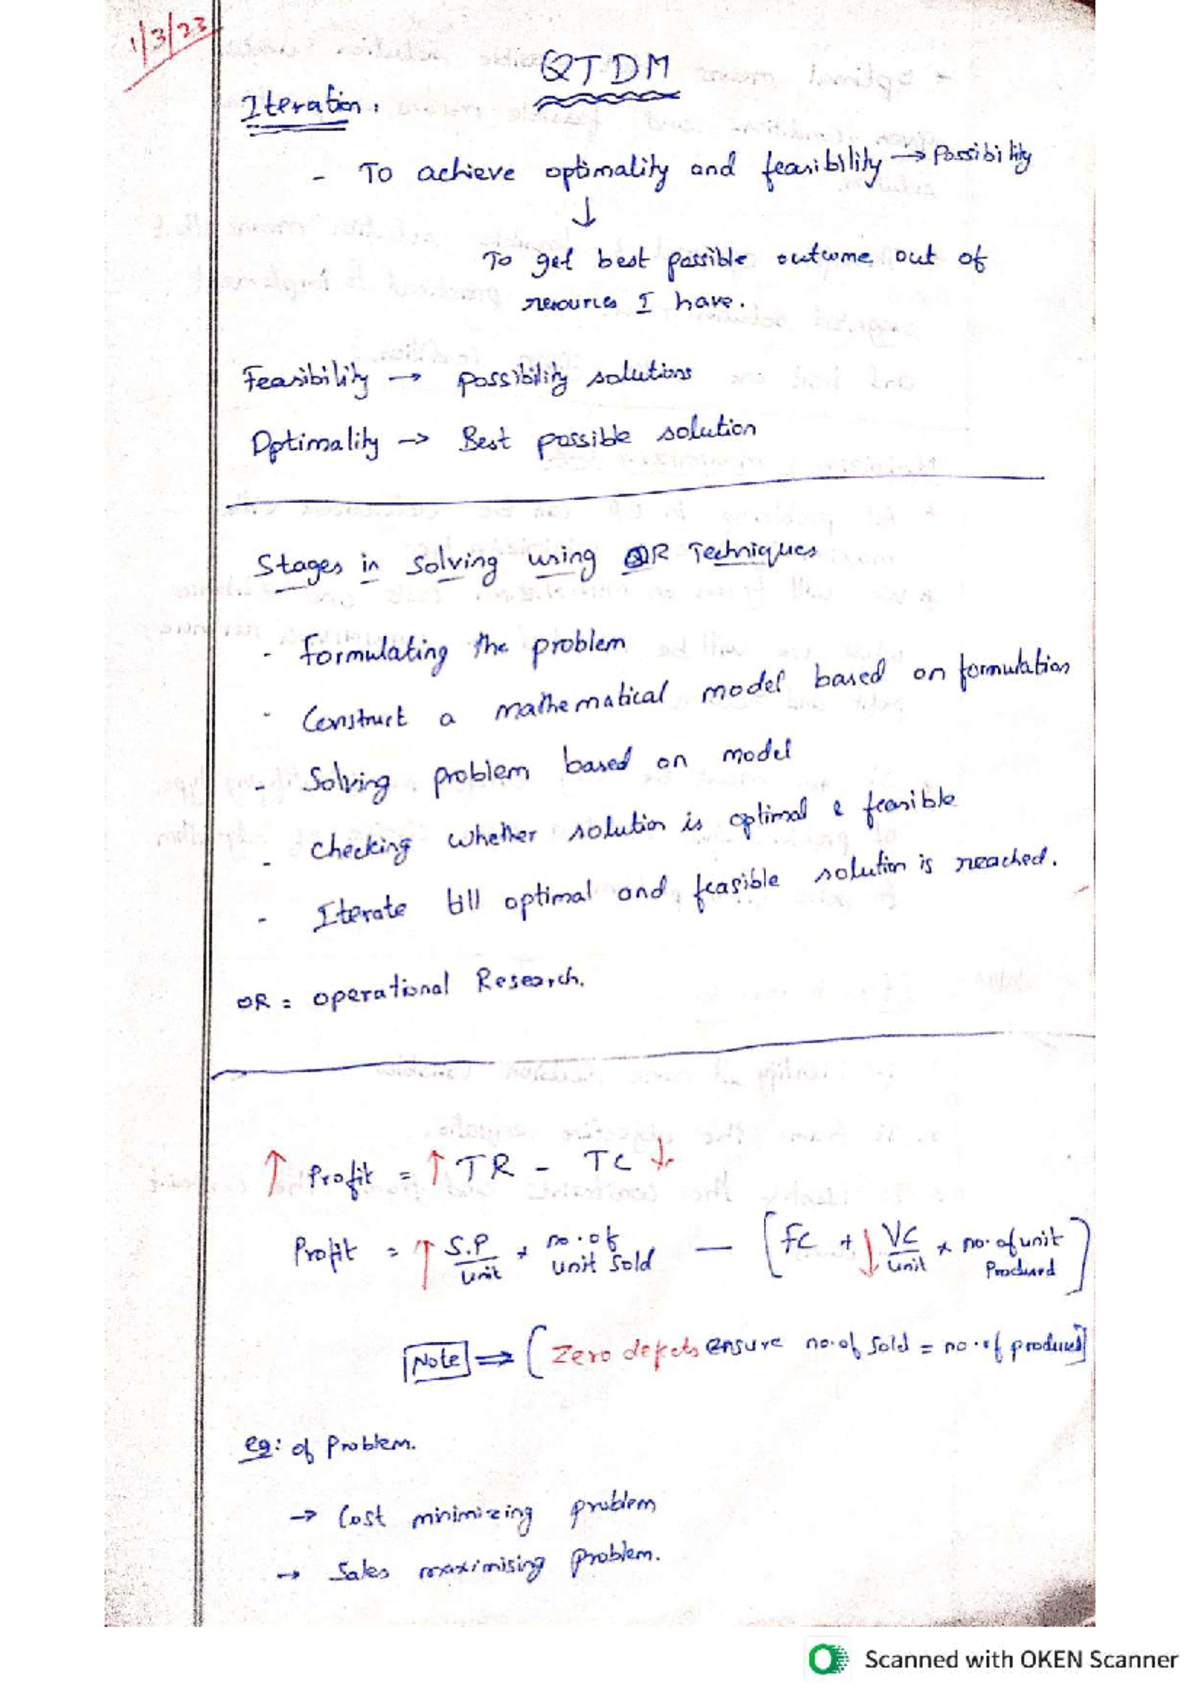 1/3/23
QTDM
Iteration:
- To achieve optimality and feasibility → Possibility
↓
To get best possible outcome out of
resources I have.
Feasibility → possibility solutions
Optimality → Best possible solution
Stages in solving using OR Techniques
- Formulating the problem
- Construct a mathematical model based on formulation
- Solving problem based on model
- Checking whether solution is optimal & feasible
- Iterate till optimal and feasible solution is reached.
OR = operational Research.
↑ Profit = ↑ TR - TC ↓
Profit = ↑ S.P/unit * no. of unit sold — [FC + ↓ VC/unit * no. of unit Produced]
Note ⇒ [Zero defects ensure no. of sold = no. of produced]
eg: of Problem.
→ Cost minimizing problem
→ Sales maximising problem.
Scanned with OKEN Scanner